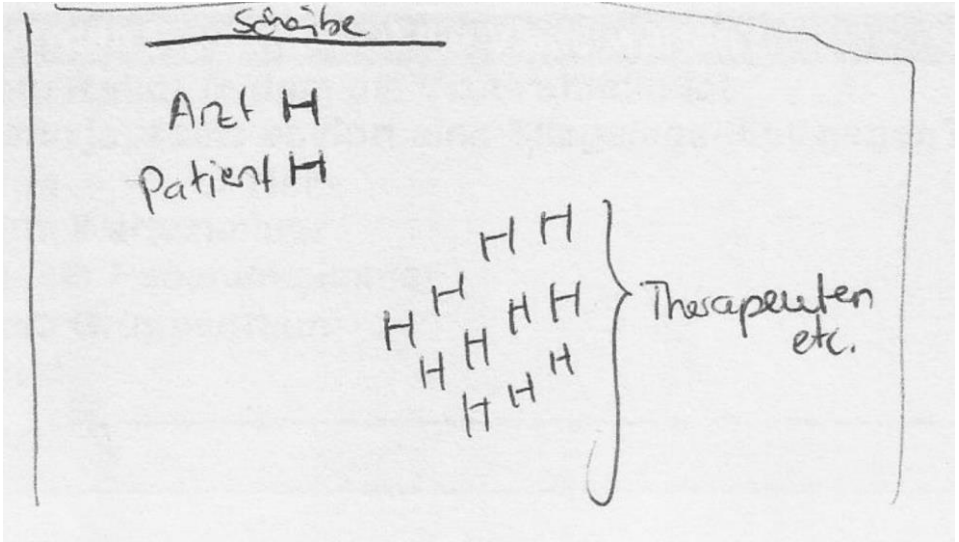 Scheibe
Arzt H
Patient H
H H
H H H
H H
H H
H H
Therapeuten
etc.